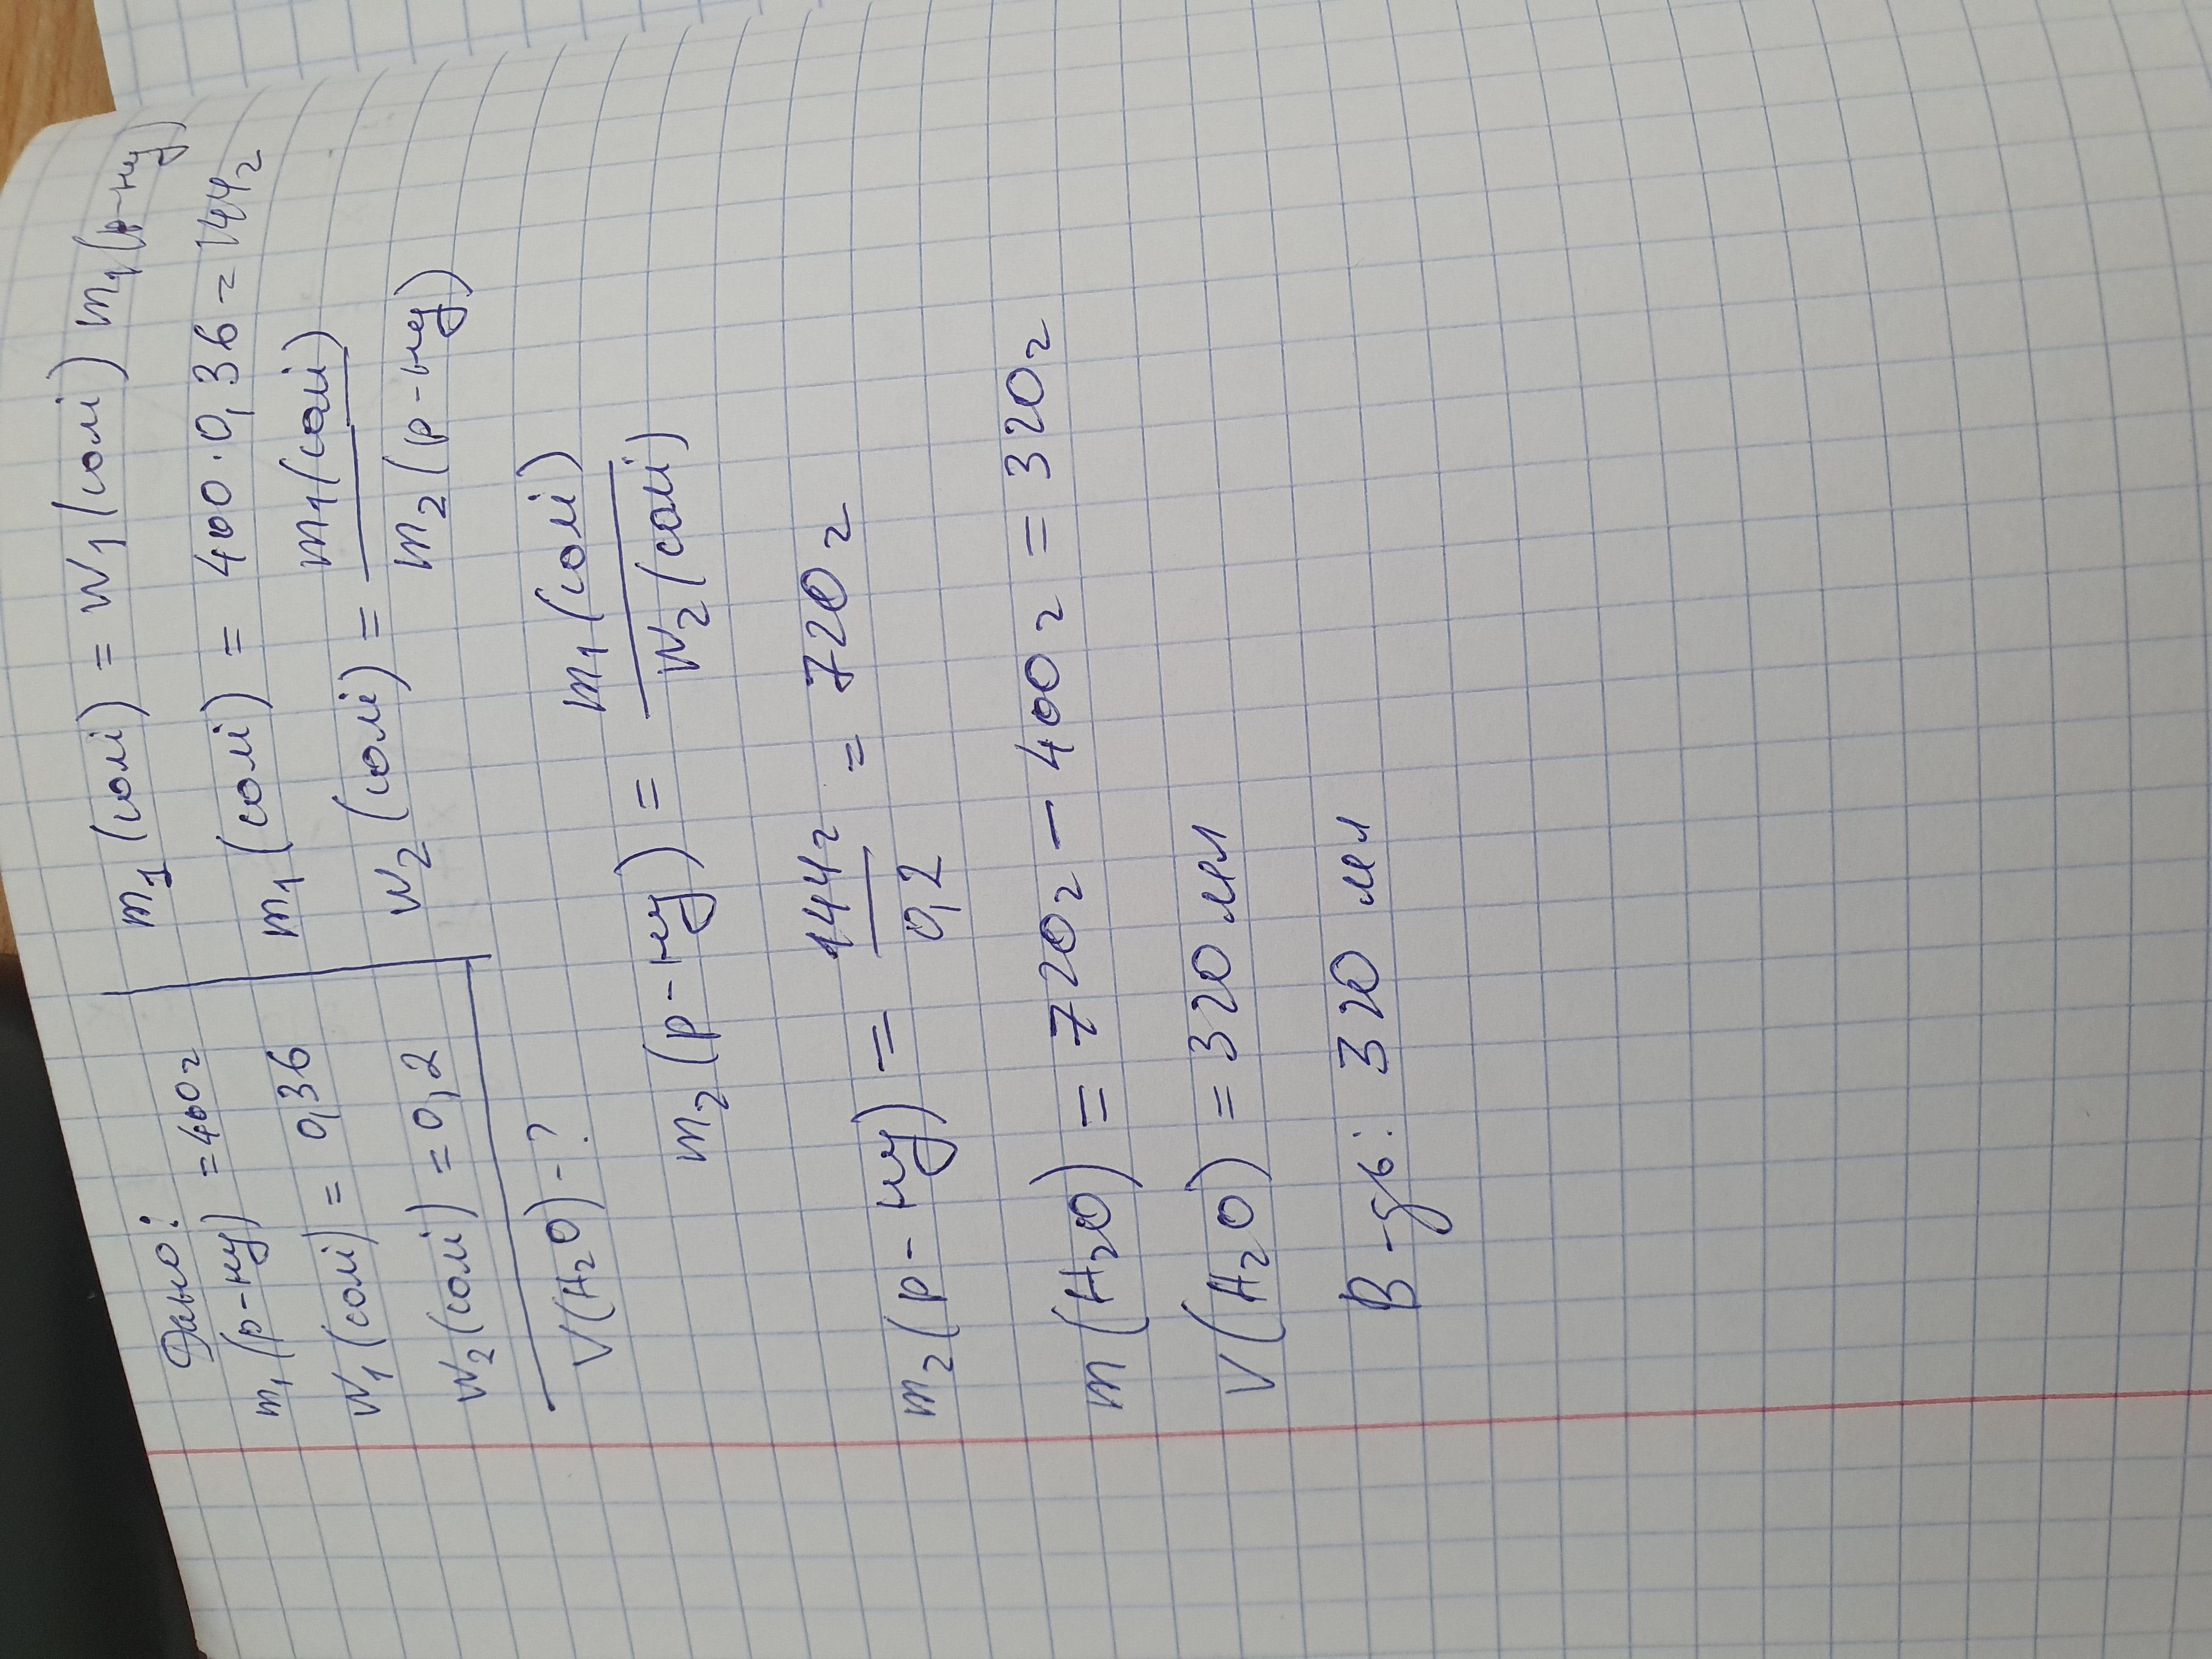 Дано:
m₁(р-ну) =400г
W₁(солі) = 0,36
W₂(солі) = 0,2
V(H₂O) - ?
m₁(солі) = W₁(солі) m₁(р-ну)
m₁(солі) = 400·0,36 = 144г
W₂(солі) = m₁(солі)
m₂(р-ну)
m₂(р-ну) = m₁(солі)
W₂(солі)
m₂(р-ну) = 144г = 720г
0,2
m(H₂O) = 720г - 400г = 320г
V(H₂O) = 320 мл
В-дь: 320 мл